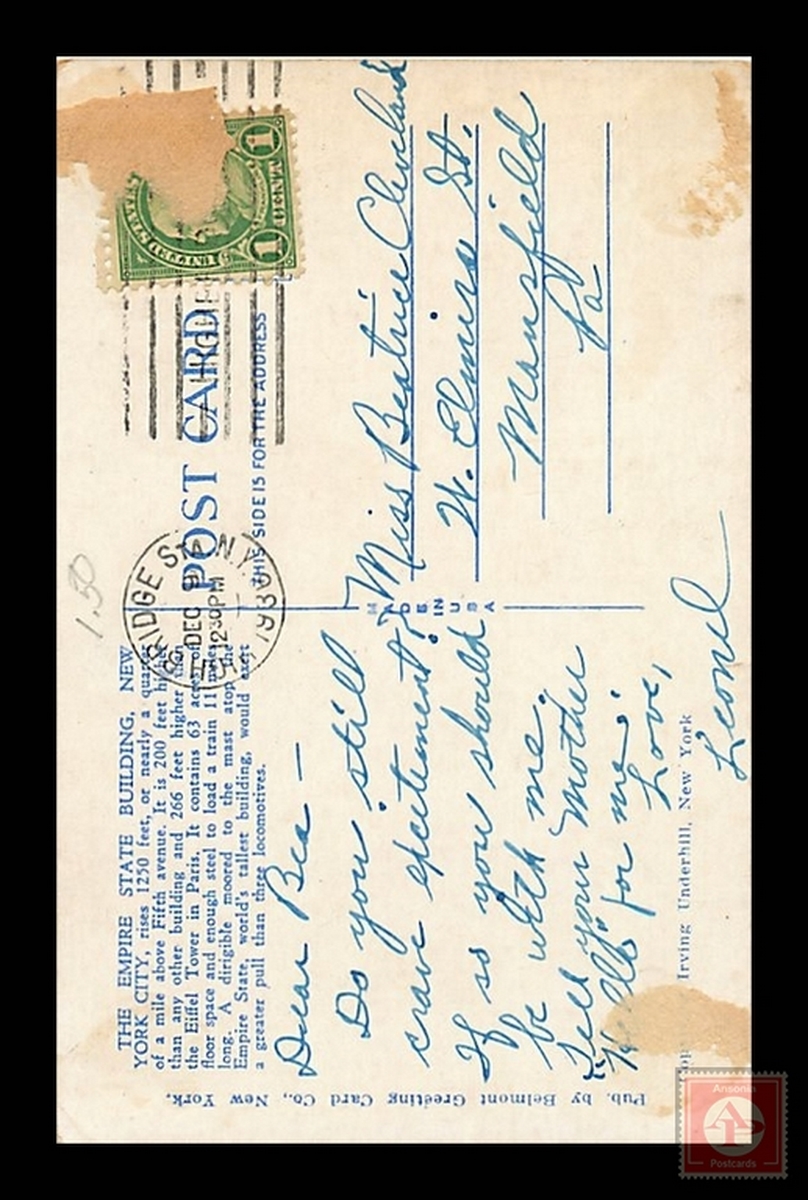 THE EMPIRE STATE BUILDING, NEW
YORK CITY, rises 1250 feet, or nearly a quarter
of a mile above Fifth avenue. It is 200 feet higher
than any other building and 266 feet higher than
the Eiffel Tower in Paris. It contains 63 acres of
floor space and enough steel to load a train 11 miles
long. A dirigible moored to the mast atop the
Empire State, world's tallest building, would exert
a greater pull than three locomotives.
Dear Bea —
Do you still
crave excitement?
If so you should
be with me.
Tell your mother
"Hello" for me.
Love,
Leonel
Irving Underhill, New York
Pub. by Belmont Greeting Card Co., New York.
MADE IN USA
POST CARD
THIS SIDE IS FOR THE ADDRESS
BRIDGE STA. N.Y.
DEC 9
1230PM
1930
1 CENT 1
Miss Beatrice Cleveland
W. Elmira St.
Mansfield
Pa
1.50
Ansonia
AP
Postcards